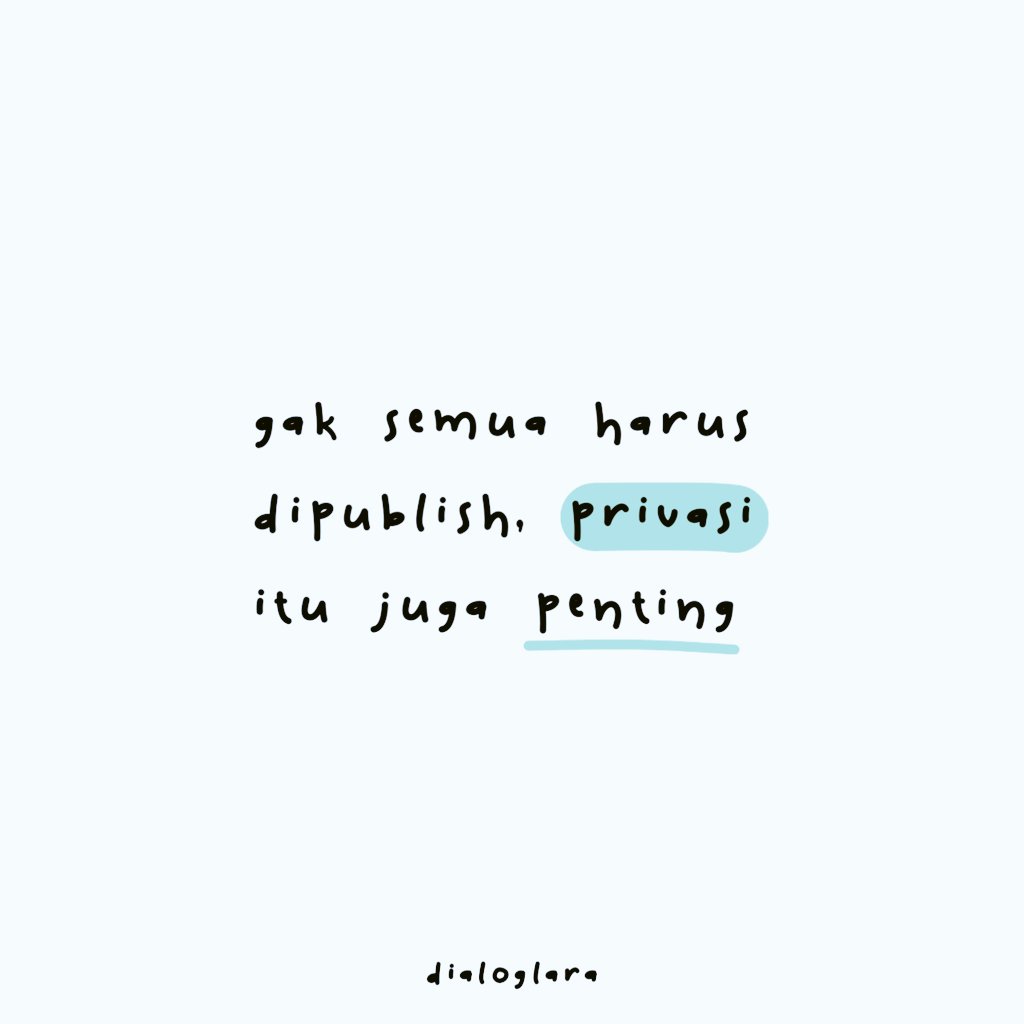 gak semua harus
dipublish, privasi
itu juga penting
dialoglara